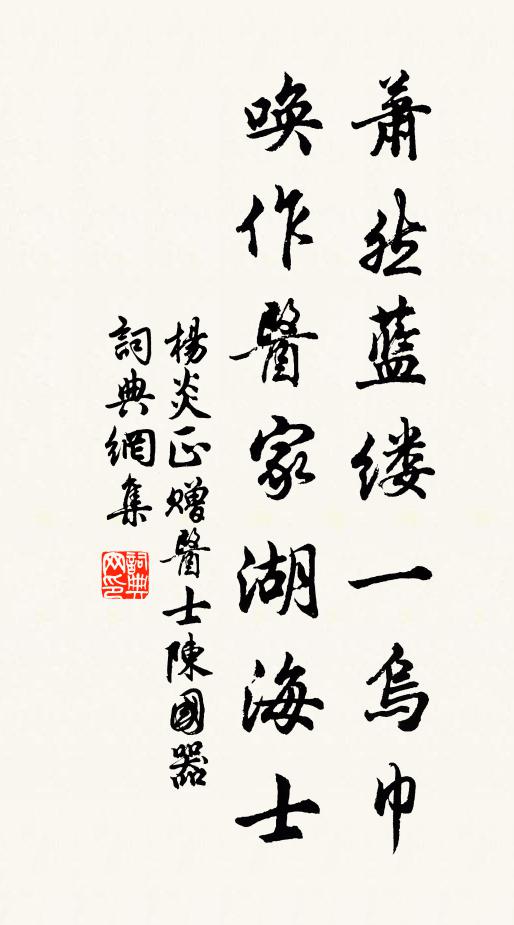 蕭然藍縷一烏巾
喚作醫家湖海士
楊炎正贈醫士陳國器
詞典網集
詞典網印